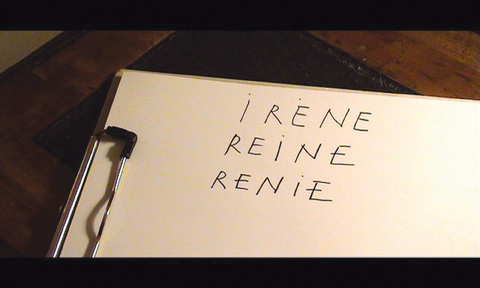 iRENE
REiNE
RENiE